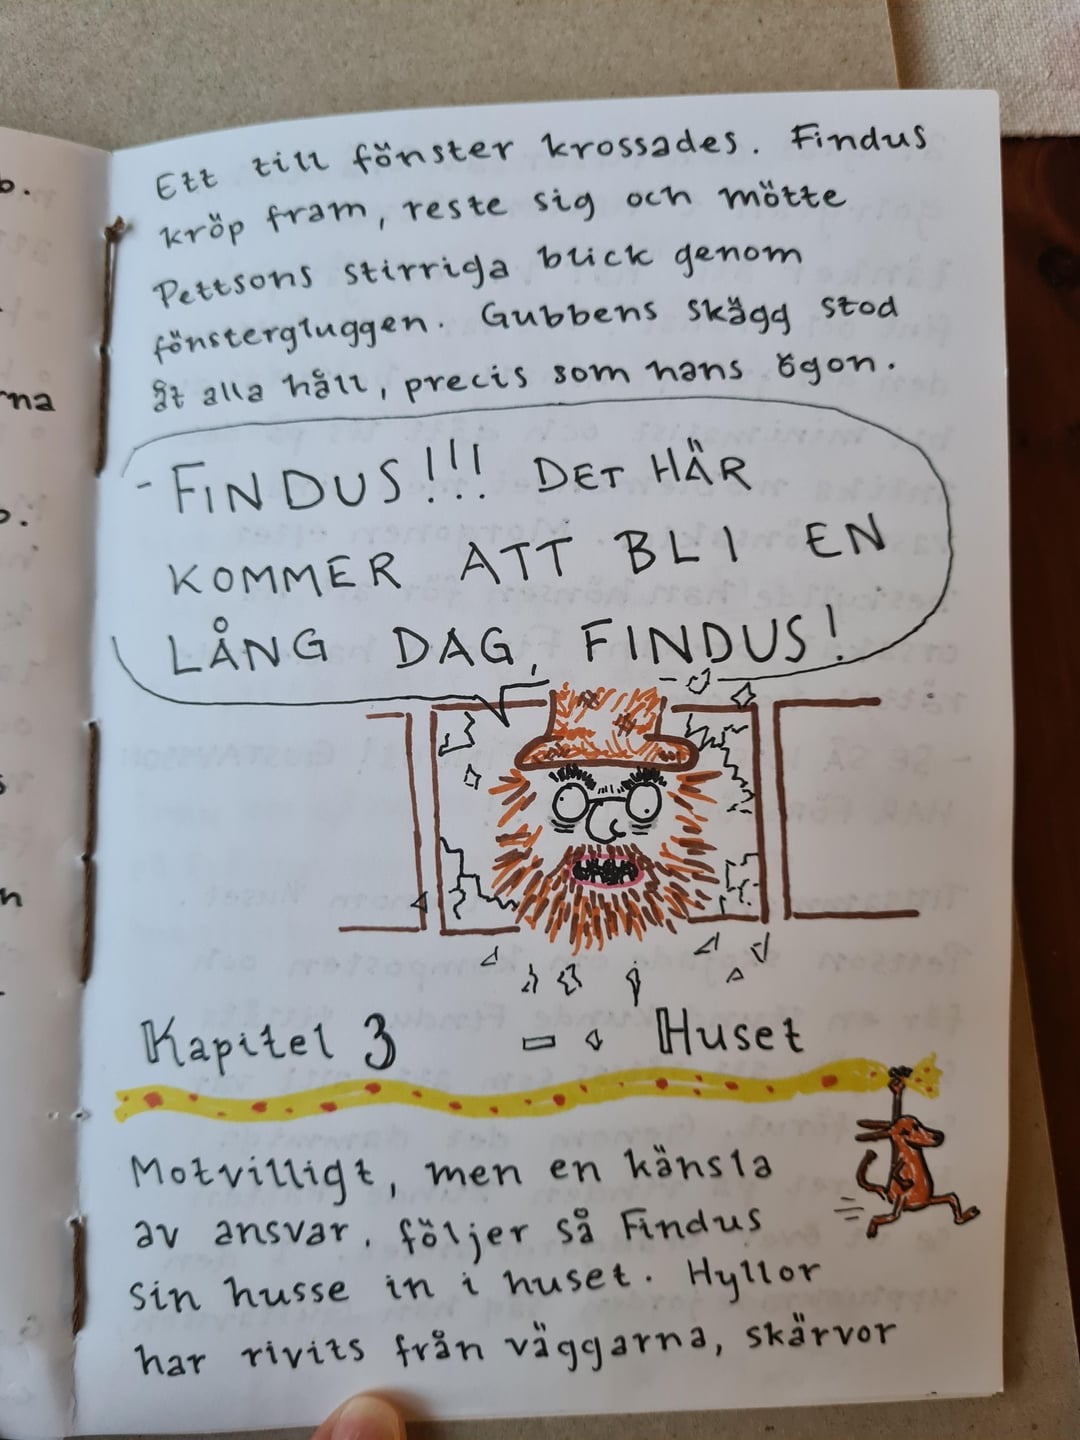 Ett till fönster krossades. Findus
kröp fram, reste sig och mötte
Pettsons stirriga blick genom
fönstergluggen. Gubbens skägg stod
åt alla håll, precis som hans ögon.
- FINDUS!!! DET HÄR
KOMMER ATT BLI EN
LÅNG DAG, FINDUS!
Kapitel 3 - Huset
Motvilligt, men en känsla
av ansvar, följer så Findus
sin husse in i huset. Hyllor
har rivits från väggarna, skärvor